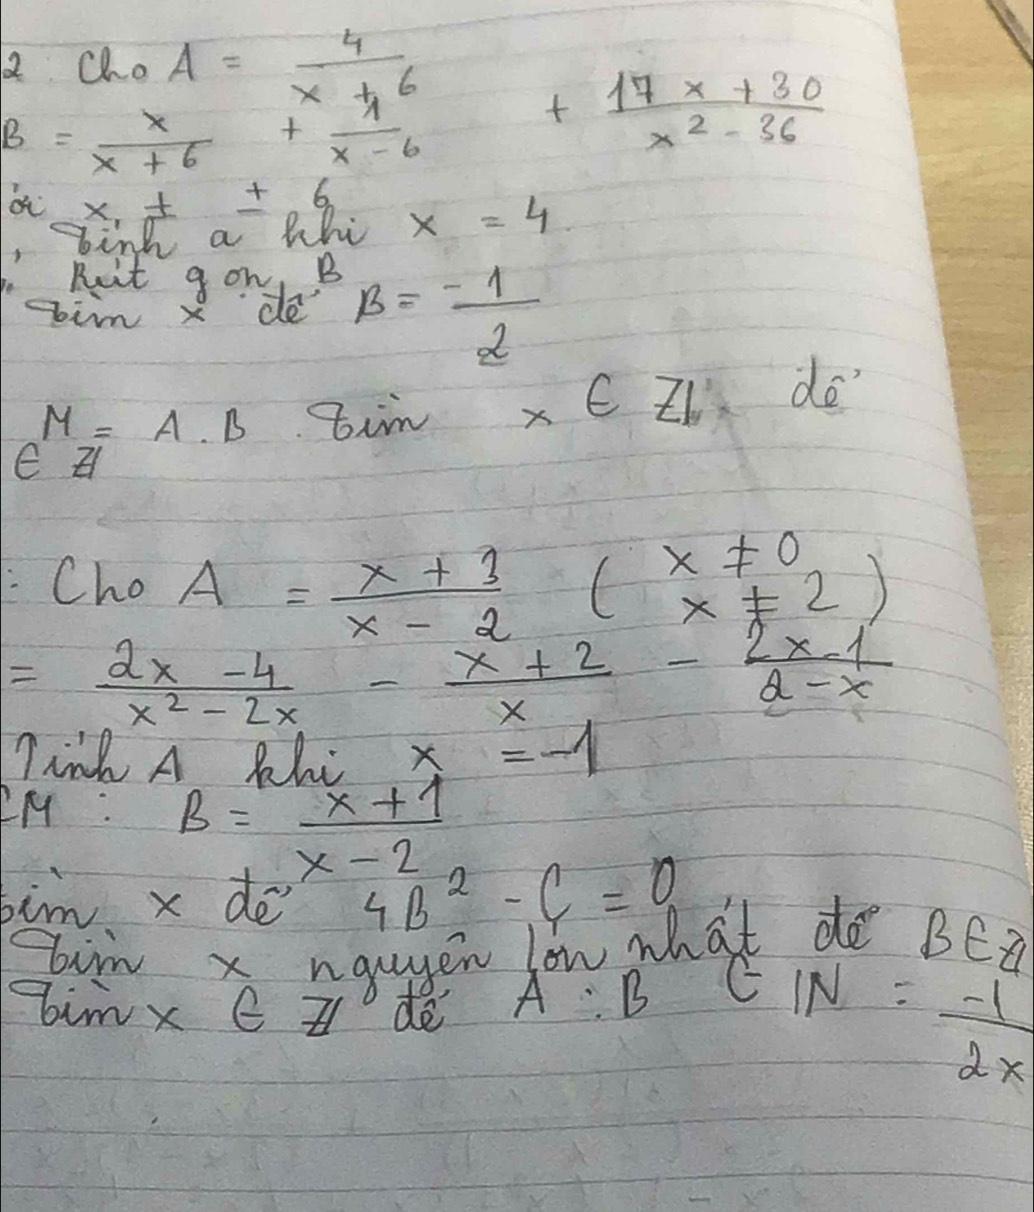 2. Cho A = 4 / (x + 6)
B = x / (x + 6) + 1 / (x - 6) + (17x + 30) / (x² - 36)
ới x, ± ± 6
, Tính a khi x = 4
Rút gọn B
Tìm x để B = -1 / 2
M = A . B . Tìm x ∈ Z để
∈ Z
: Cho A = (x + 3) / (x - 2) ( x ≠ 0 x ≠ 2 )
= (2x - 4) / (x² - 2x) - (x + 2) / x - (2x - 1) / (2 - x)
Tính A khi x = -1
CM : B = (x + 1) / (x - 2)
Tìm x để 4B² - C = 0
Tìm x nguyên lớn nhất để B ∈ Z
Tìm x ∈ Z để A : B ∈ N = -1 / 2x